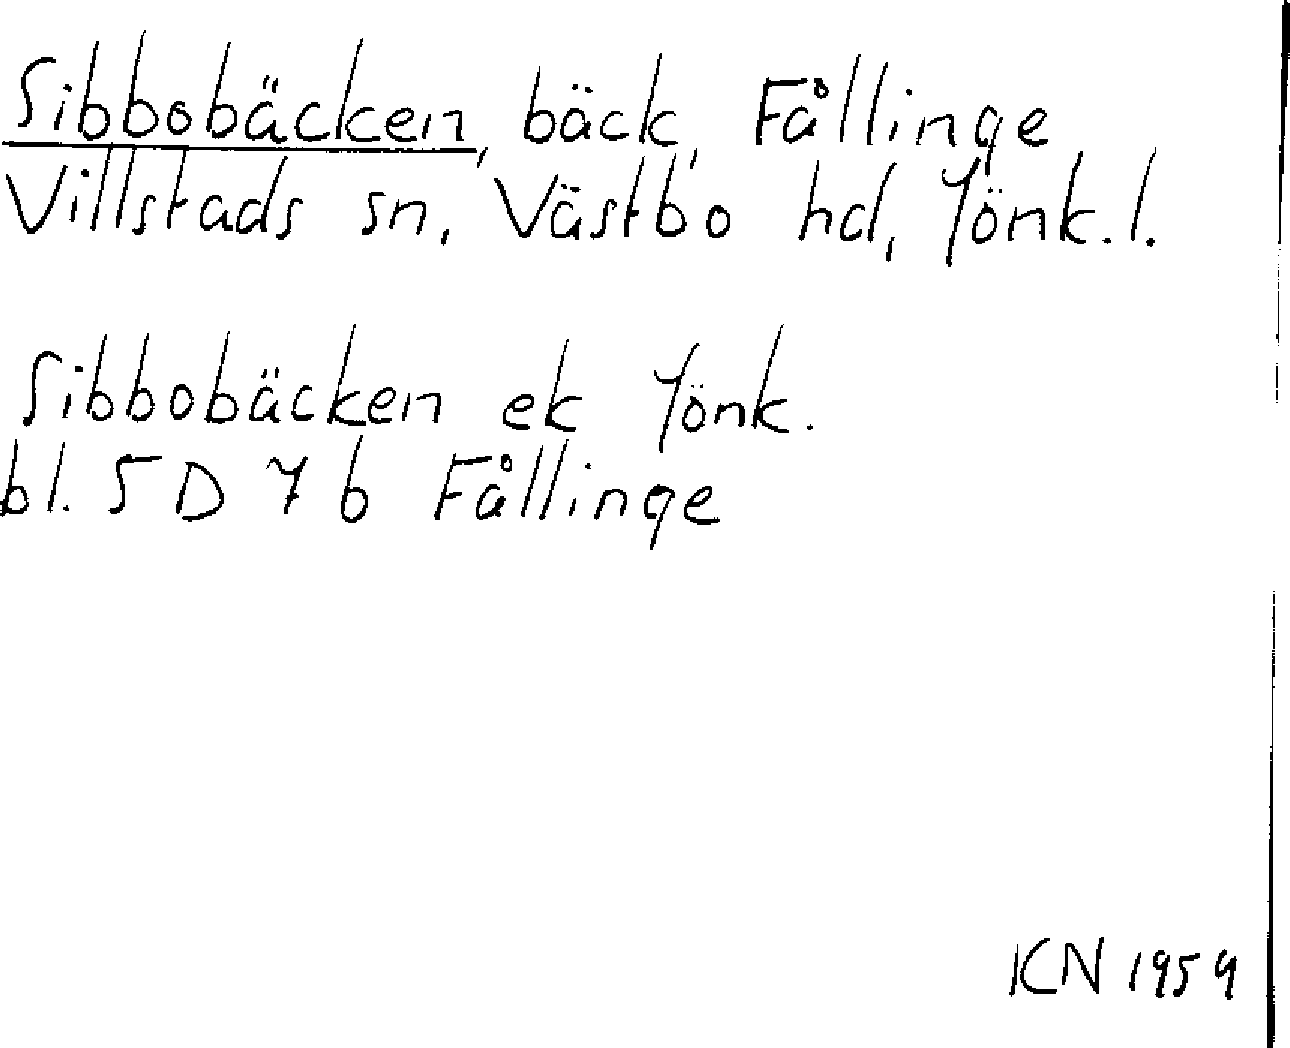 Sibbobäcken, bäck, Fållinge
Villstads sn, Västbo hd, Jönk. l.
Sibbobäcken ek Jönk.
bl. 5 D 7 b Fållinge
KN 1959